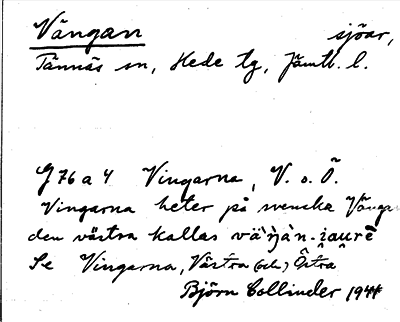 Vångan sjöar,
Tännäs sn, Hede tg, Jämtl. l.
G 76 a 4 Vingarna, V. o. Ö.
Vingarna heter på svenska Vånga
den västra kallas
Se Vingarna, Västra (och) Östra
Björn Collinder 1944